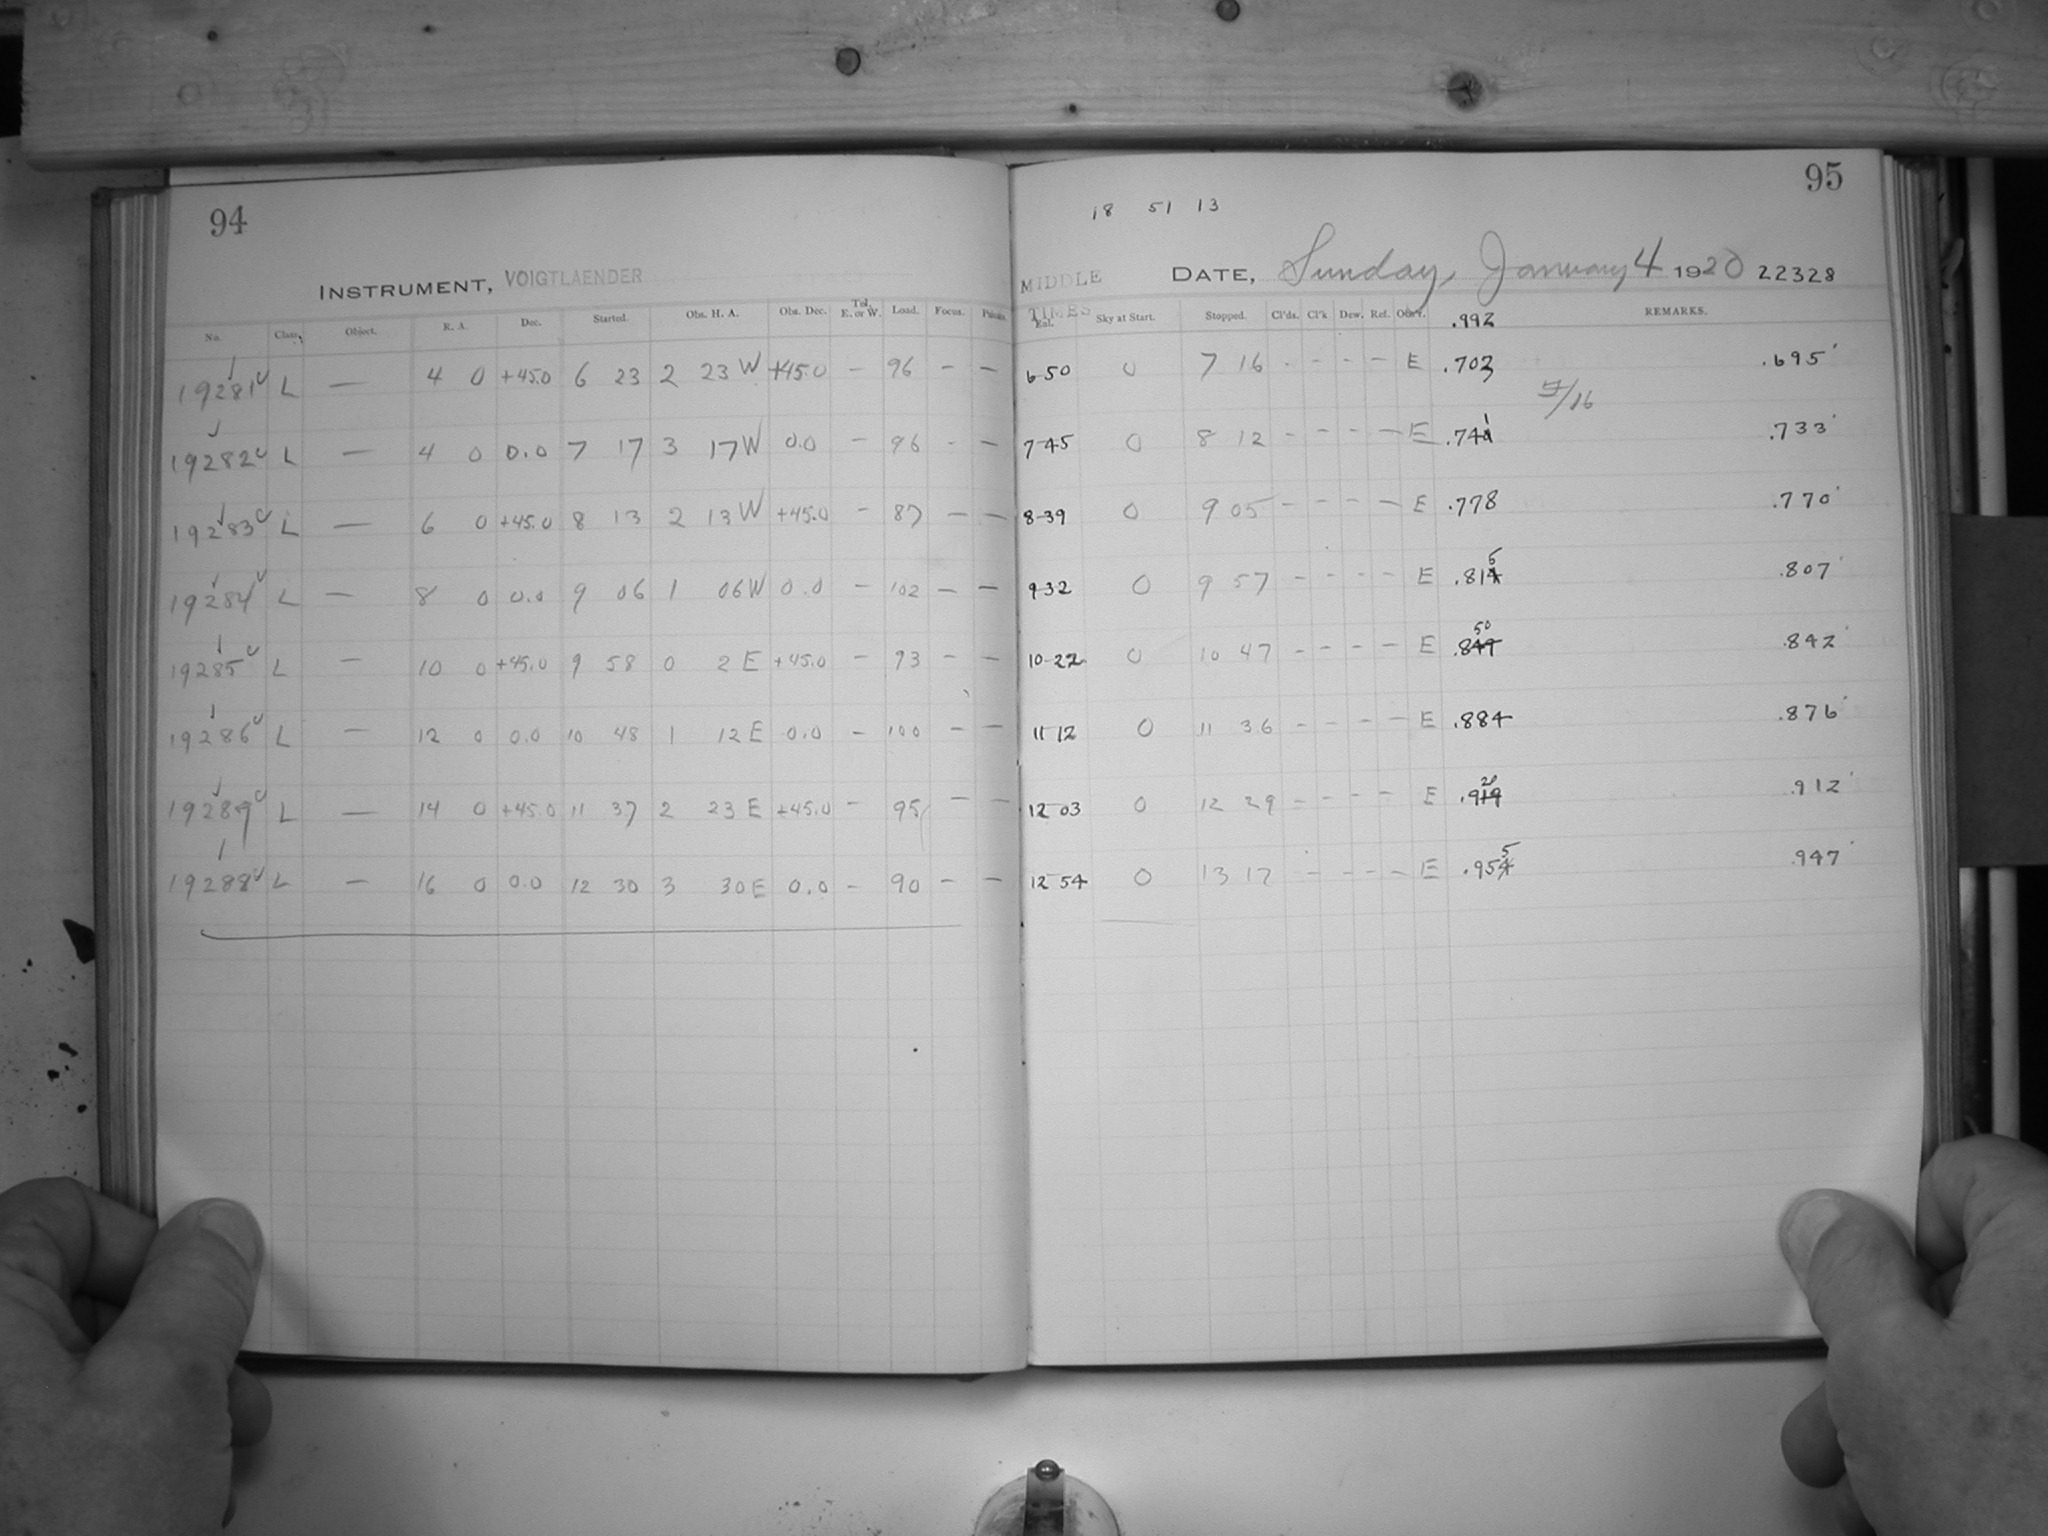 94
INSTRUMENT, VOIGTLAENDER
No. Class. Object. R. A. Dec. Started. Obs. H. A. Obs. Dec. Tel. E. or W. Load. Focus.
19281 L — 4 0 +45.0 6 23 2 23 W +45.0 — 96 — —
19282 L — 4 0 0.0 7 17 3 17 W 0.0 — 96 - —
19283 L — 6 0 +45.0 8 13 2 13 W +45.0 — 87 — —
19284 L — 8 0 0.0 9 06 1 06 W 0.0 — 102 — —
19285 L — 10 0 +45.0 9 58 0 2 E +45.0 — 93 — —
19286 L — 12 0 0.0 10 48 1 12 E 0.0 — 100 — —
L — 14 0 +45.0 11 37 2 23 E +45.0 — 95 — —
19288 L — 16 0 0.0 12 30 3 30 E 0.0 — 90 — —
95
18 51 13
MIDDLE TIMES DATE, Sunday, January 4 1920 22328
Sky at Start. Stopped. Cl'ds. Cl'k Dew. Ref. Obs'r. .992 REMARKS.
6 50 0 7 16 - - - - E .703 .695
/16
7 45 0 8 12 - - - - E .741 .733
8-39 0 9 05 - - - - E .778 .770
9 32 0 9 57 - - - - E .815 .807
10-22 0 10 47 - - - - E .850 .842
11 12 0 11 36 - - - - E .884 .876
12 03 0 12 29 - - - - E .920 .912
12 54 0 13 17 - - - - E .955 .947